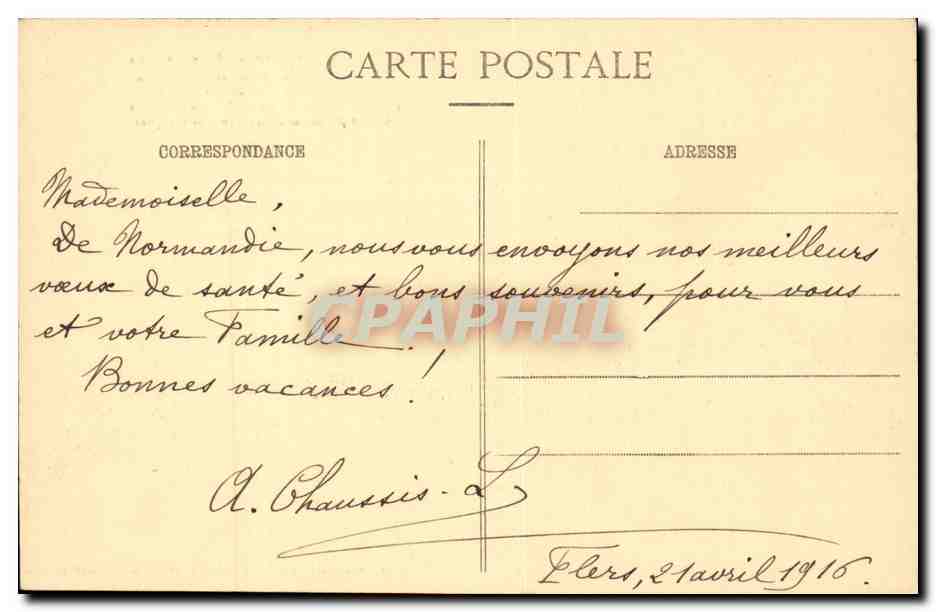 CARTE POSTALE
CORRESPONDANCE
ADRESSE
Mademoiselle,
De Normandie, nous vous envoyons nos meilleurs
vœux de santé, et bons souvenirs, pour vous
et votre Famille !
Bonnes vacances !
CPAPHIL
A. Chaussis - L
Flers, 21 avril 1916.